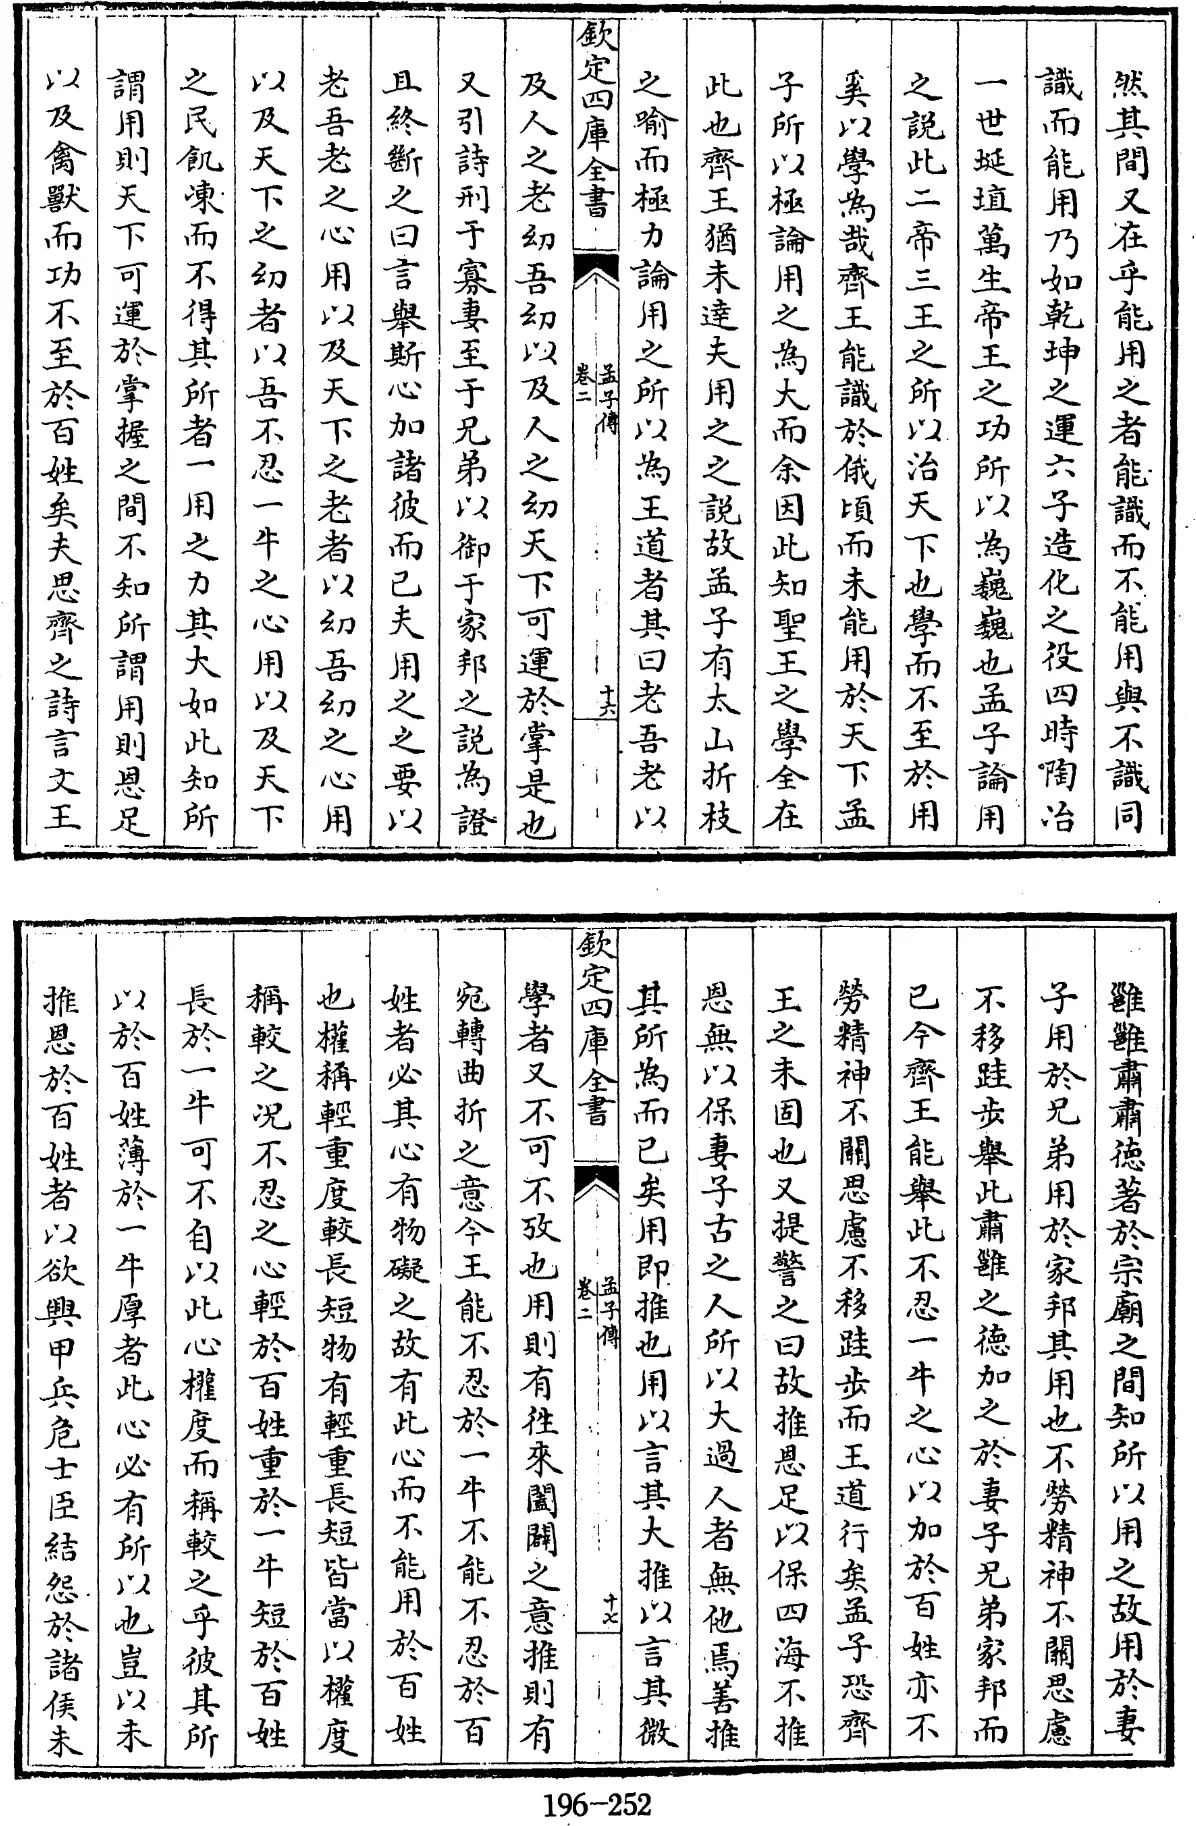 然其間又在乎能用之者能識而不能用與不識同
識而能用乃如乾坤之運六子造化之役四時陶冶
一世埏埴萬生帝王之功所以為巍巍也孟子論用
之説此二帝三王之所以治天下也學而不至於用
奚以學為哉齊王能識於俄頃而未能用於天下孟
子所以極論用之為大而余因此知聖王之學全在
此也齊王猶未達夫用之之説故孟子有太山折枝
之喻而極力論用之所以為王道者其曰老吾老以
欽定四庫全書
孟子傳
卷二
十六
及人之老幼吾幼以及人之幼天下可運於掌是也
又引詩刑于寡妻至于兄弟以御于家邦之説為證
且終斷之曰言舉斯心加諸彼而已夫用之之要以
老吾老之心用以及天下之老者以幼吾幼之心用
以及天下之幼者以吾不忍一牛之心用以及天下
之民飢凍而不得其所者一用之力其大如此知所
謂用則天下可運於掌握之間不知所謂用則恩足
以及禽獸而功不至於百姓矣夫思齊之詩言文王
雝雝肅肅德著於宗廟之間知所以用之故用於妻
子用於兄弟用於家邦其用也不勞精神不關思慮
不移跬步舉此肅雝之德加之於妻子兄弟家邦而
已今齊王能舉此不忍一牛之心以加於百姓亦不
勞精神不關思慮不移跬步而王道行矣孟子恐齊
王之未固也又提警之曰故推恩足以保四海不推
恩無以保妻子古之人所以大過人者無他焉善推
其所為而已矣用即推也用以言其大推以言其微
欽定四庫全書
孟子傳
卷二
十七
學者又不可不攷也用則有徃來闔闢之意推則有
宛轉曲折之意今王能不忍於一牛不能不忍於百
姓者必其心有物礙之故有此心而不能用於百姓
也權稱輕重度較長短物有輕重長短皆當以權度
稱較之况不忍之心輕於百姓重於一牛短於百姓
長於一牛可不自以此心權度而稱較之乎彼其所
以於百姓薄於一牛厚者此心必有所以也豈以未
推恩於百姓者以欲興甲兵危士臣結怨於諸侯未
196-252